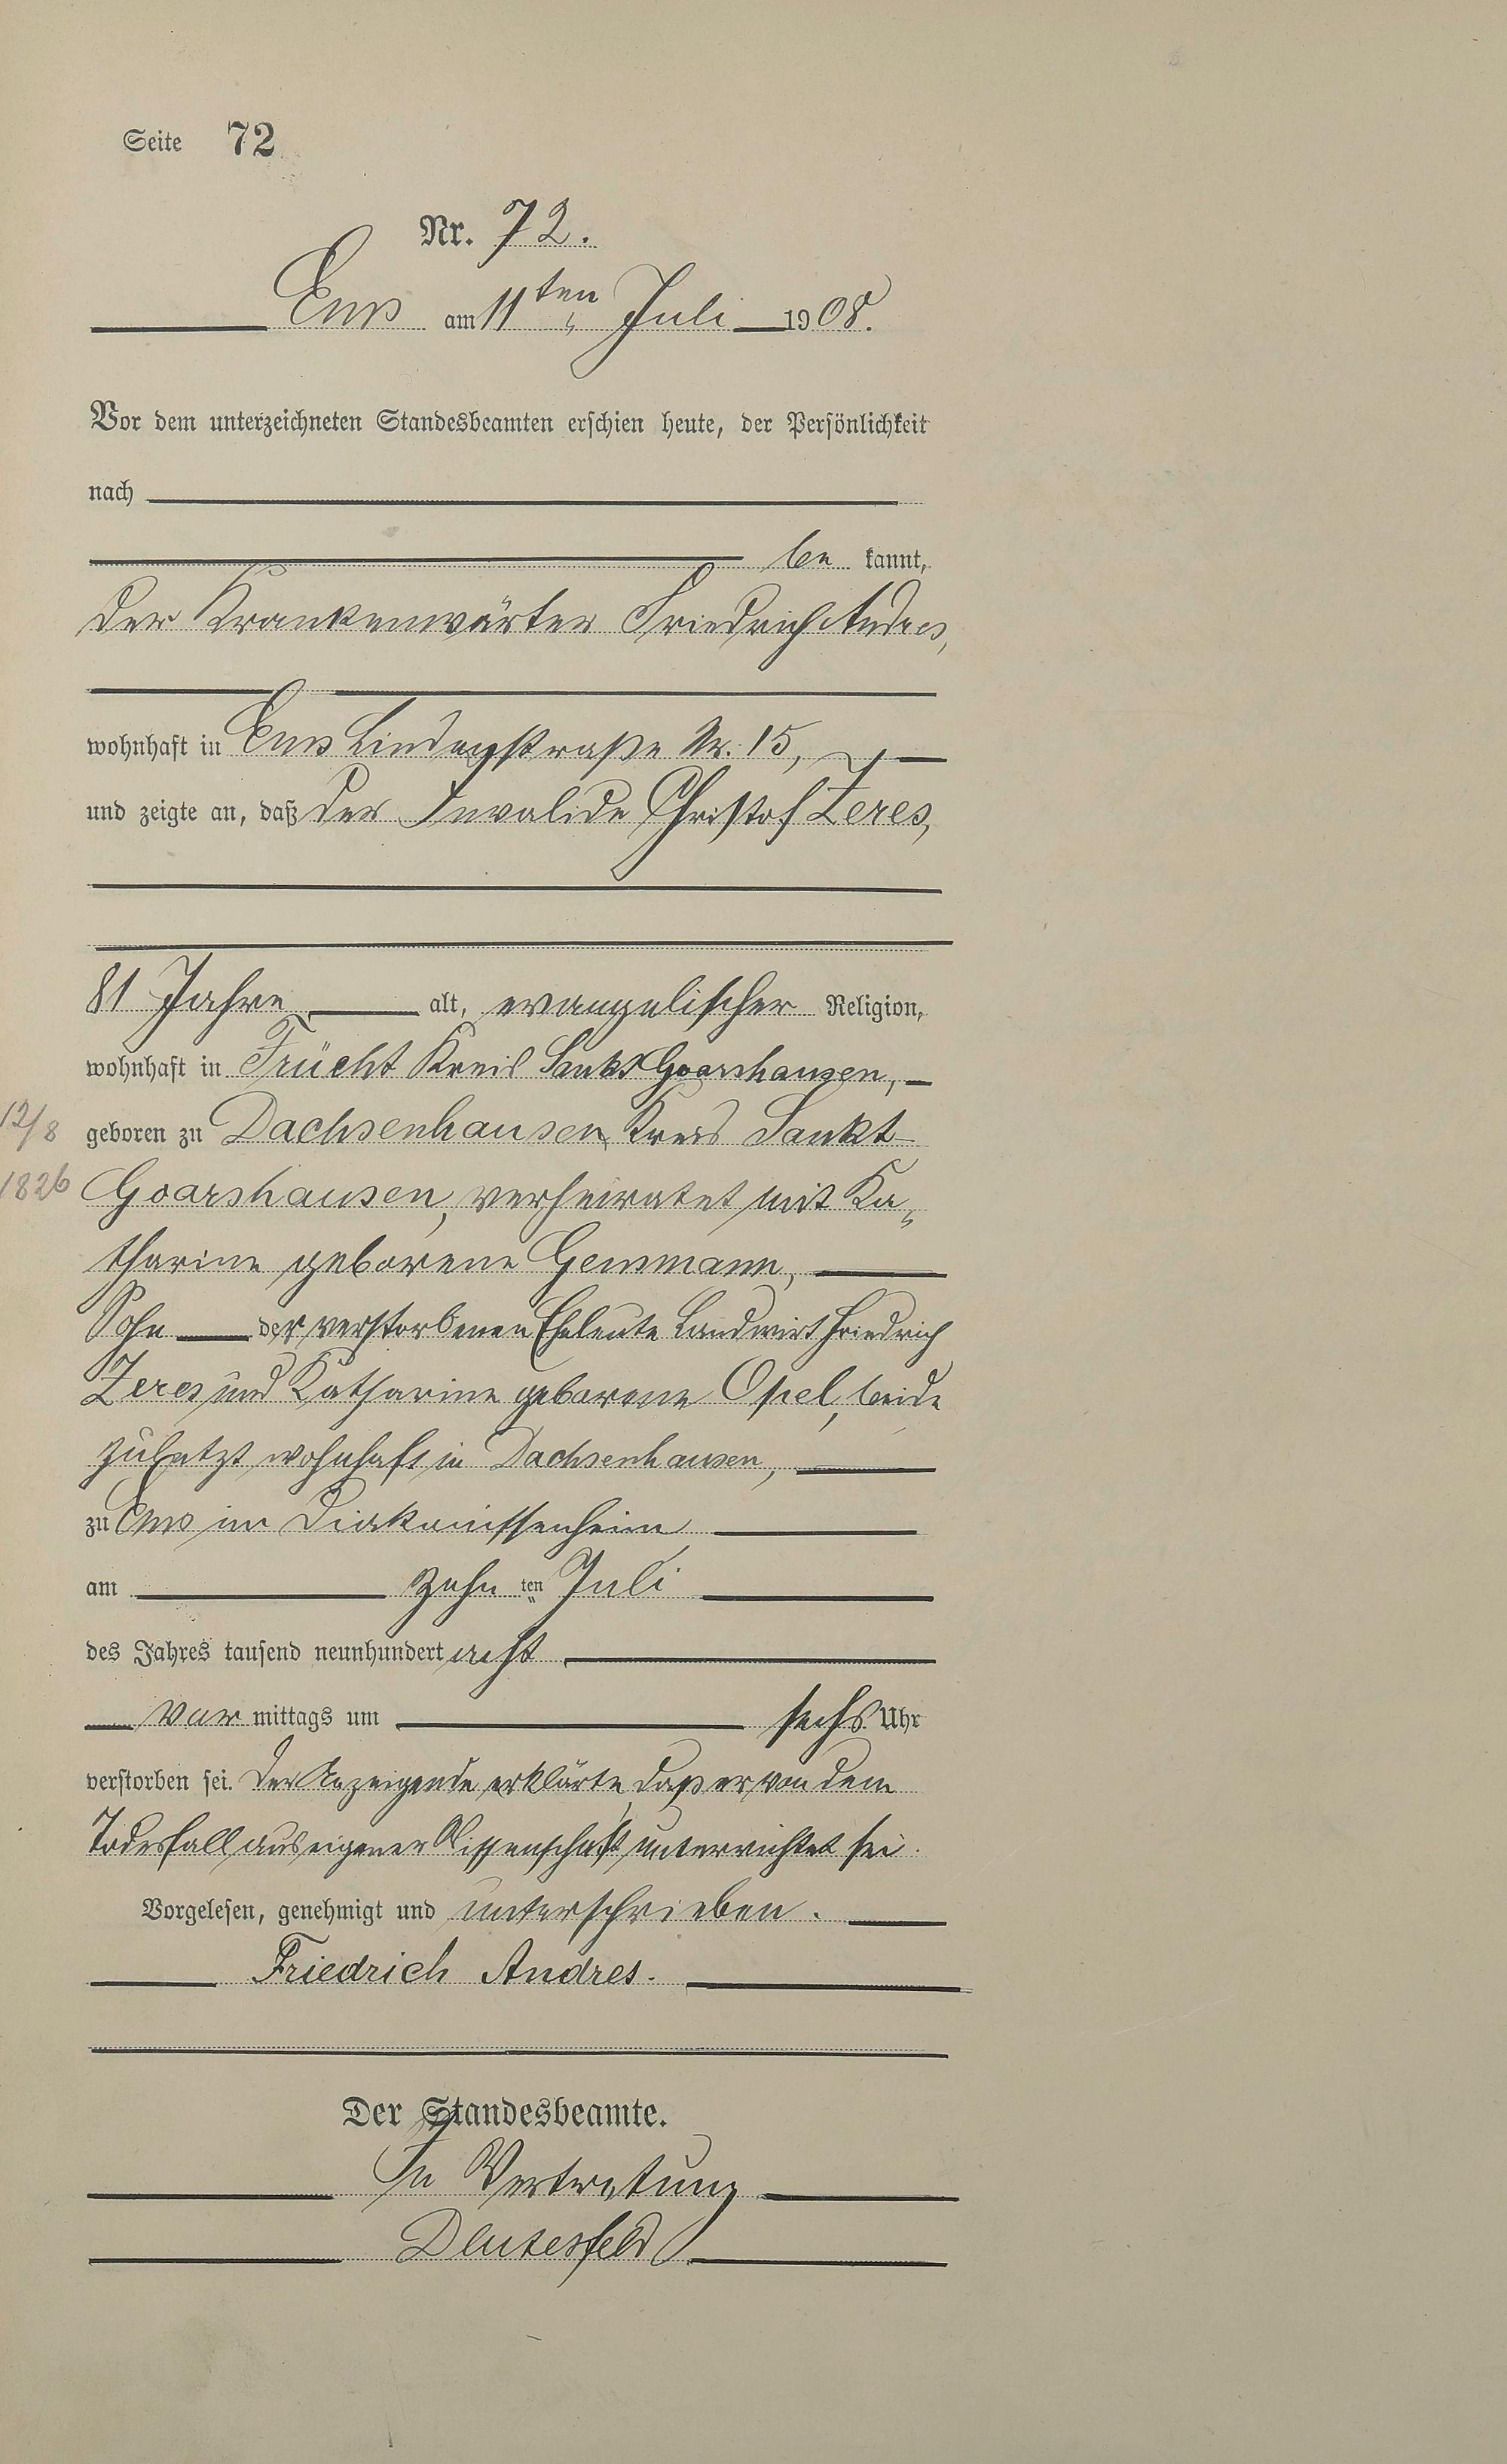 Seite 72
Nr. 72.
Ems am 11ten Juli 1908.
Vor dem unterzeichneten Standesbeamten erschien heute, der Persönlichkeit
nach
be kannt,
der Krankenwärter Friedrich Andres,
wohnhaft in Ems Lindenstraße Nr. 15,
und zeigte an, daß der Invalide Christof Zeres,
81 Jahre alt, evangelischer Religion,
wohnhaft in Frücht Kreis Sankt Goarshausen,
12/8 geboren zu Dachsenhausen Kreis Sankt
1826 Goarshausen, verheiratet mit Ka„
tharine geborene Gemmann,
Sohn der verstorbenen Eheleute Landwirt Friedrich
Zeres und Katharine geborene Opel, beide
zuletzt wohnhaft in Dachsenhausen,
zu Ems im Diakonissenheim
am zehn ten Juli
des Jahres tausend neunhundert acht
vor mittags um sechs Uhr
verstorben sei. Der Anzeigende erklärte, daß er von dem
Todesfall aus eigener Wissenschaft unterrichtet sei.
Vorgelesen, genehmigt und unterschrieben.
Friedrich Andres.
Der Standesbeamte.
In Vertretung